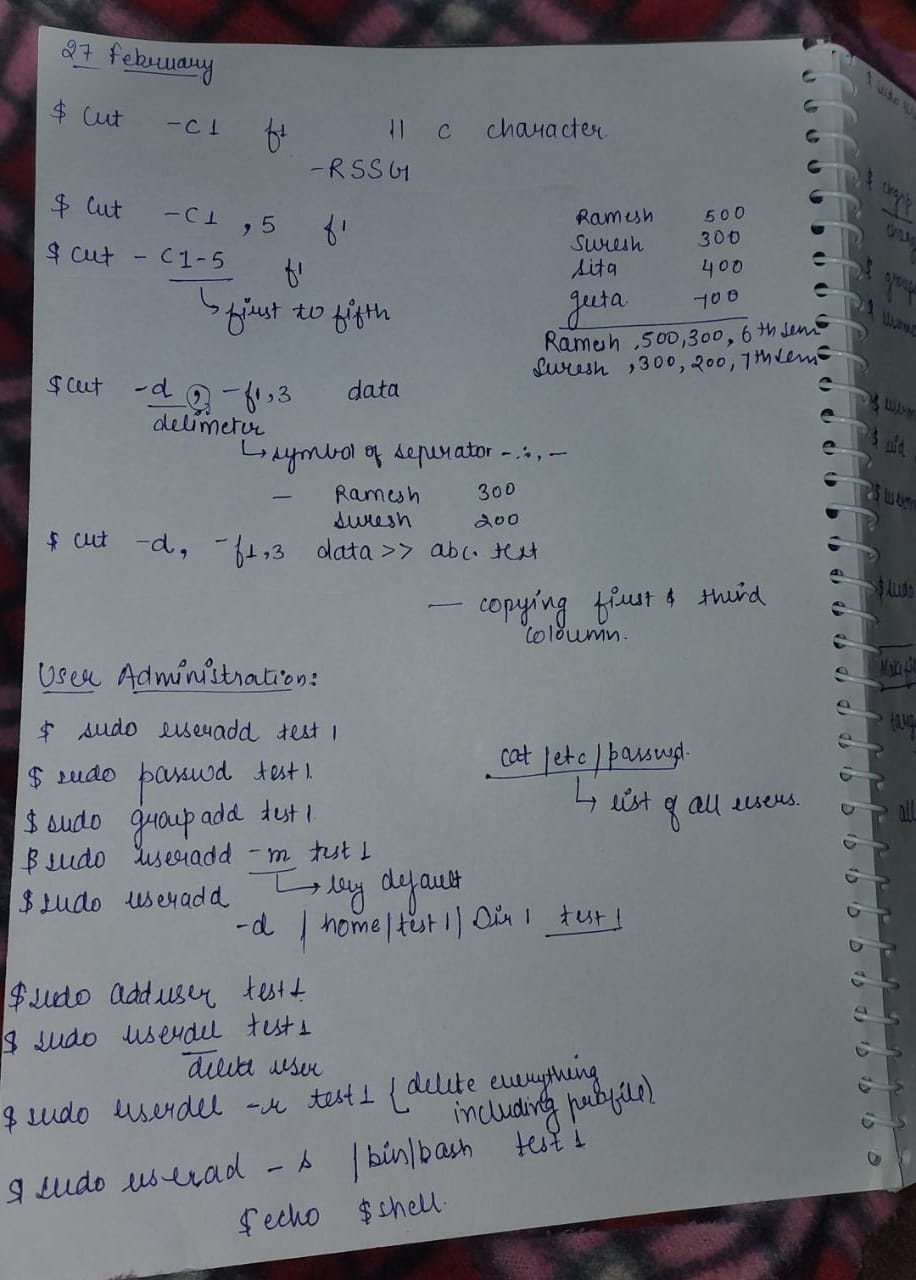 27 February
$ cut -c1 f1 || c character
-RSSG
$ cut -c1 ,5 f1
$ cut - c1-5 f1
↳ first to fifth
Ramesh 500
Suresh 300
Sita 400
geeta 700
Ramesh ,500,300, 6th sem
Suresh ,300, 200, 7th sem
$ cut -d , -f1,3 data
delimeter
↳ symbol of seperator - .:, -
- Ramesh 300
Suresh 200
$ cut -d, -f1,3 data >> abc. test
- copying first & third
coloumn.
User Administration:
$ sudo useradd test 1
$ sudo passwd test 1
cat /etc/passwd.
↳ list of all users.
$ sudo groupadd test 1
$ sudo useradd -m test 1
↳ by default
$ sudo useradd
-d / home/test 1/ Dir 1 test 1
$ sudo adduser test 1
$ sudo userdel test 1
delete user
$ sudo userdel -r test 1 { delete everything
including profile}
$ sudo userad - s /bin/bash test 1
$ echo $shell.